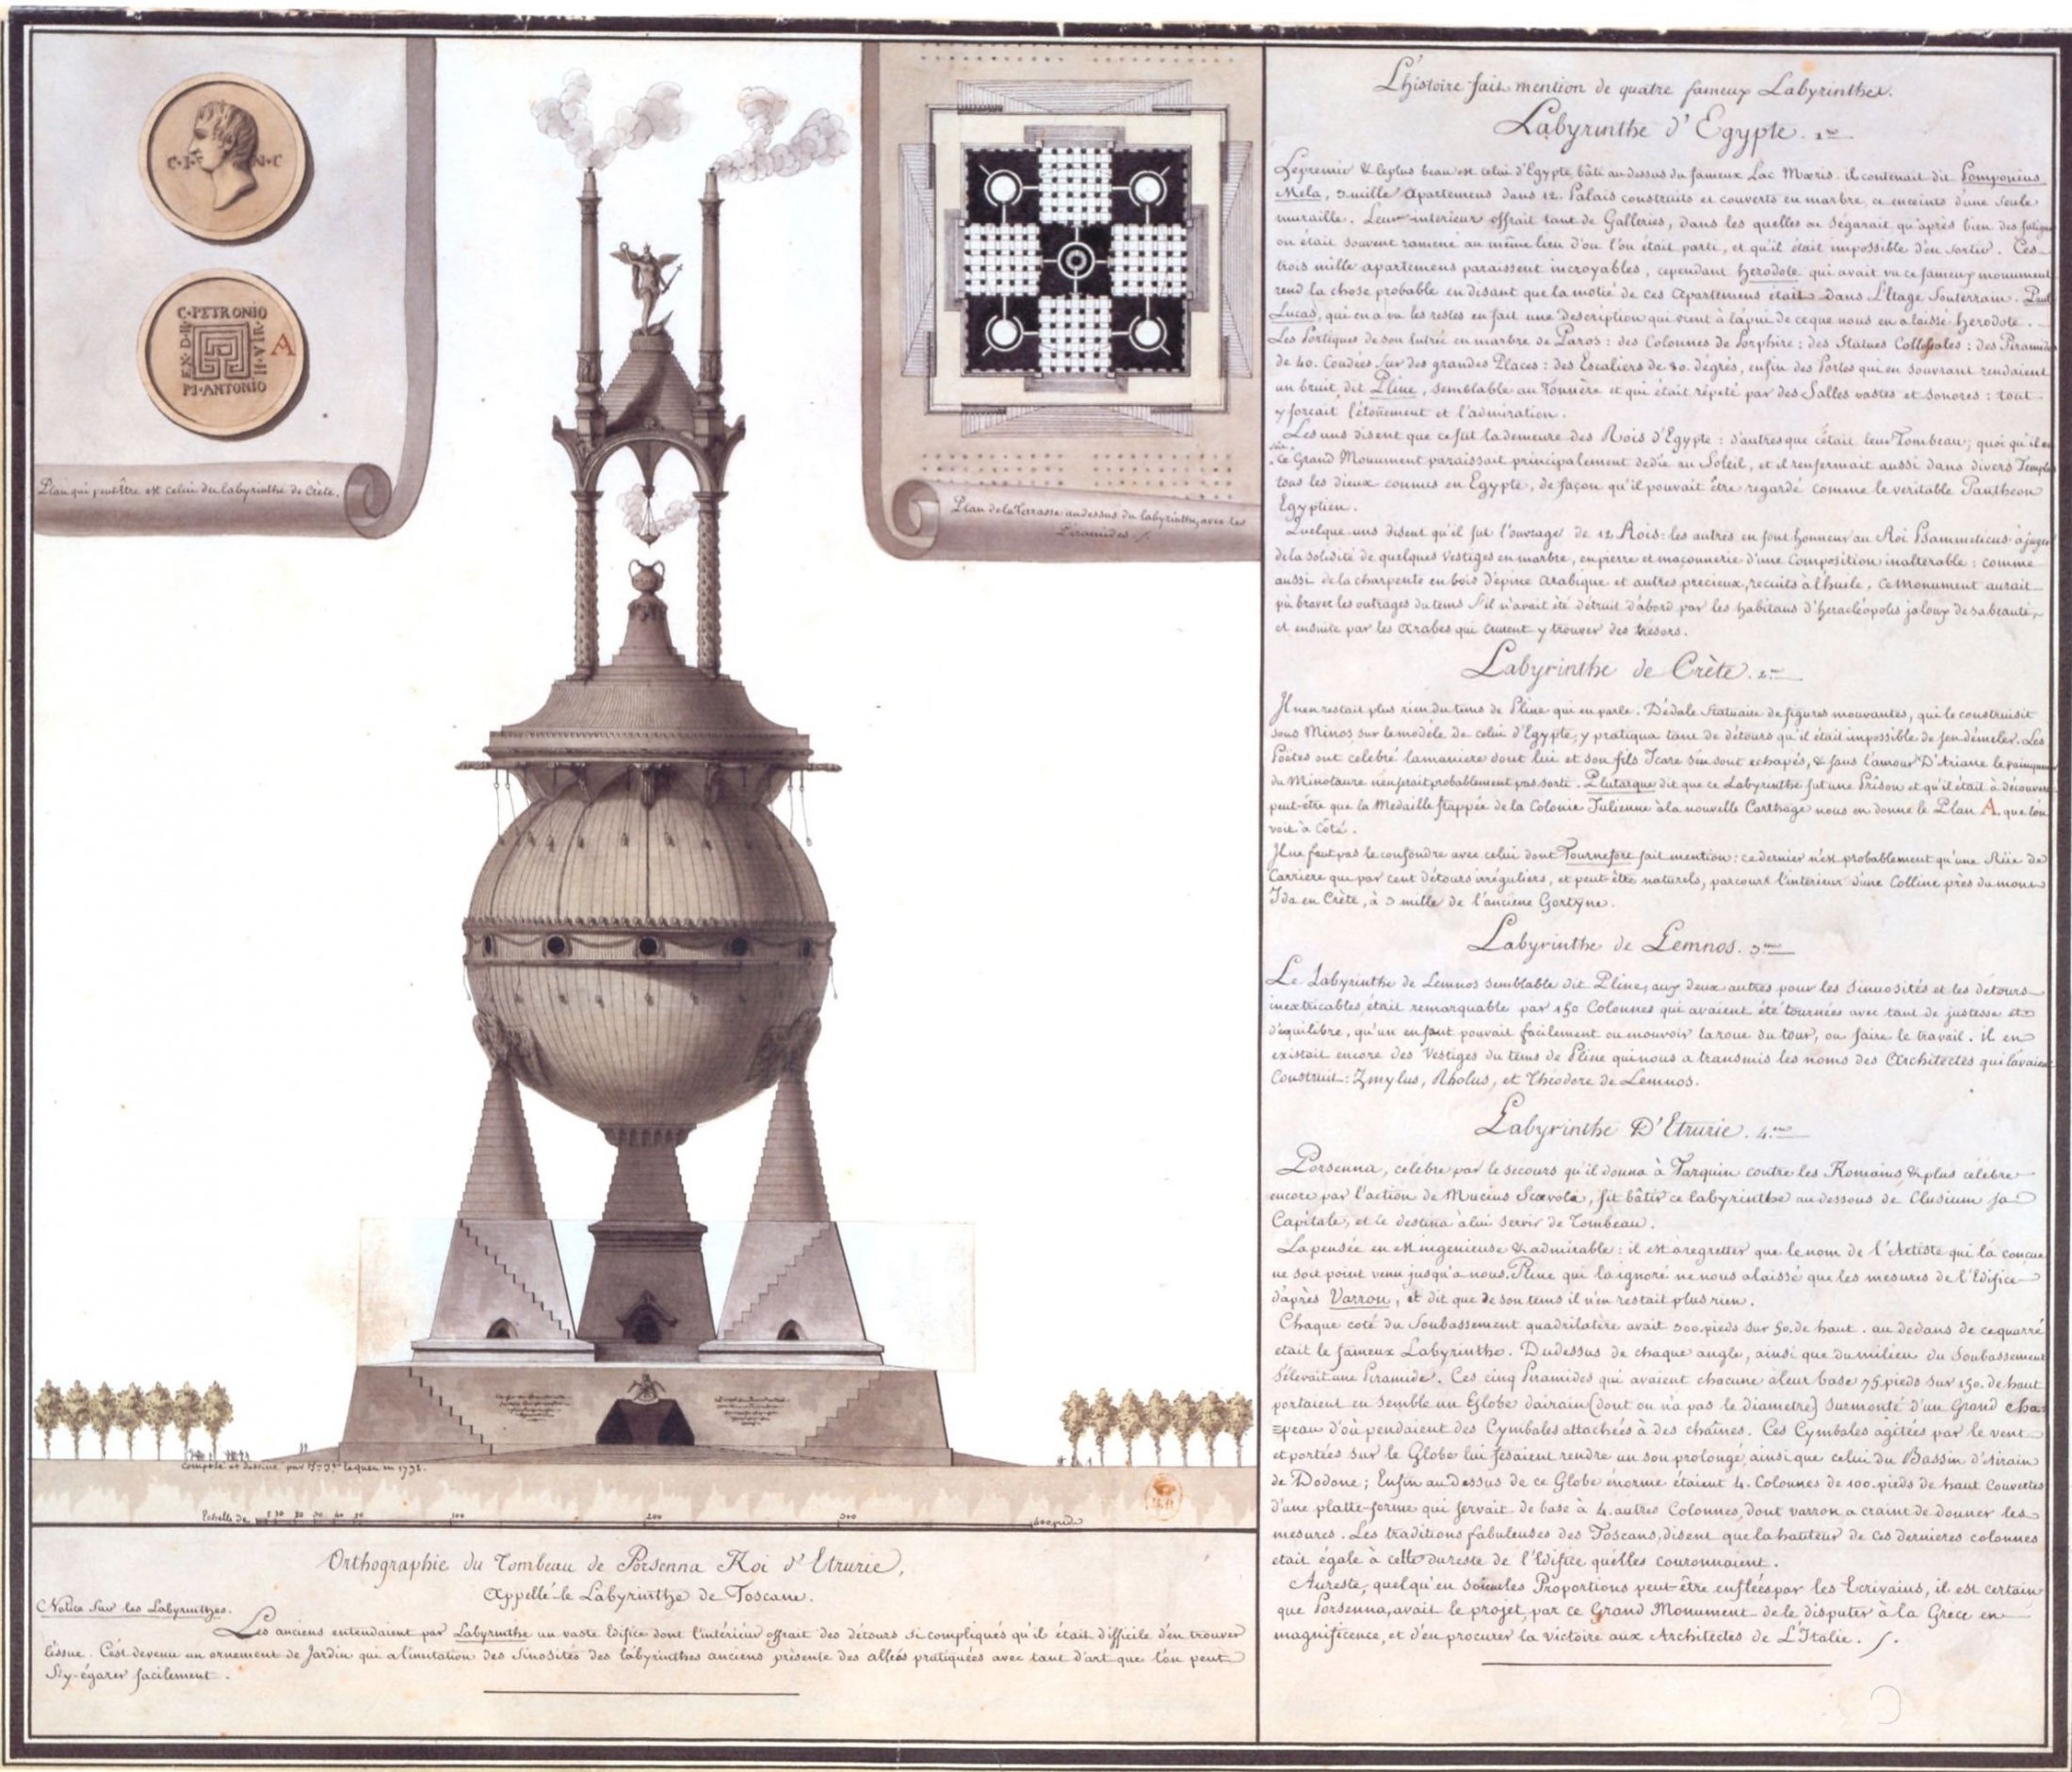 C·I· N·C
C·PETRONIO
EX·D·D
A
PJ·ANTONIO
Plan qui peut-être est celui du labyrinthe de Crète.
Plan de la Terrasse au dessus du labyrinthe, avec les
Piramides
Composé et dessiné par
le queu en 1792.
Echelle de 5 10 20 30 40 50 100 200 300 400 pieds
Orthographie du Tombeau de Porsenna Roi d'Etrurie,
Appellé le Labyrinthe de Toscane.
Notice sur les Labyrinthes.
Les anciens entendaient par Labyrinthe un vaste Edifice dont l'intérieur offrait des détours si compliqués qu'il était difficile d'en trouver
l'issue. C'est devenu un ornement de Jardin qui a l'imitation des Sinosités des labyrinthes anciens présente des allées pratiquées avec tant d'art que l'on peut
s'y égarer facilement.
L'histoire fait mention de quatre fameux Labyrinthes.
Labyrinthe d'Egypte. 1er
Le premier & le plus beau est celui d'Egypte, bâti au dessus du fameux Lac Mœris. il contenait dit Pomponius
Mela, 3 mille Apartemens dans 12. Palais construits et couverts en marbre, et enceints d'une seule
muraille. Leur interieur offrait tant de Galleries, dans les quelles on s'égarait qu'après bien des fatigues
on était souvent ramené au même lieu d'où l'on était parti, et qu'il était impossible d'en sortir. Ces
trois mille apartemens paraissent incroyables, cependant herodote qui avait vu ce fameux monument
rend la chose probable en disant que la moitié de ces Apartemens était dans L'Etage Souterrain. Paul
Lucas, qui en a vu les restes en fait une description qui vient à l'apui de ce que nous en a laissé herodote.
Les Portiques de son Entrée en marbre de Paros: des Colonnes de Porphire; des Statues Collossales: des Piramides
de 40. Coudées sur des grandes Places: des Escaliers de 80. dégrés, enfin des Portes qui en s'ouvrant rendaient
un bruit, dit Pline, semblable au Tonnère et qui était répété par des Salles vastes et sonores: tout
y forçait l'étoñement et l'admiration.
Les uns disent que ce fut la demeure des Rois d'Egypte: d'autres que c'était leur Tombeau; quoi qu'il en
soit, Ce Grand Monument paraissait principalement dédié au Soleil, et il renfermait aussi dans divers Temples
tous les dieux connus en Egypte, de façon qu'il pouvait être regardé comme le veritable Pantheon
Egyptien.
Quelque-uns disent qu'il fut l'ouvrage de 12 Rois: les autres en font honneur au Roi Psammeticus à juger
de la solidité de quelques Vestiges en marbre, en pierre et maçonnerie d'une Composition inalterable: comme
aussi de la charpente en bois d'épine Arabique et autres precieux, recuits à l'huile, ce monument aurait
pû braver les outrages du tems s'il n'avait été détruit d'abord par les habitans d'heracléopolis jaloux de sa beauté,
et ensuite par les Arabes qui crurent y trouver des tresors.
Labyrinthe de Crète. 2me
Il n'en restait plus rien du tems de Pline qui en parle. Dédale Statuaire de figures mouvantes, qui le construisit
sous Minos, sur le modèle de celui d'Egypte, y pratiqua tant de détours qu'il était impossible de s'en démeler. Les
Poètes ont celebré la maniere dont lui et son fils Icare s'en sont echapés, & sans l'amour D'Ariane le vainqueur
du Minotaure n'en serait probablement pas sorti. Plutarque dit que ce Labyrinthe fut une Prison et qu'il était à découvert
peut-être que la Medaille frappée de la Colonie Julienne à la nouvelle Carthage nous en donne le Plan A. que l'on
voit à Côté.
Il ne faut pas le confondre avec celui dont Tournefort fait mention: ce dernier n'est probablement qu'une
Carriere qui par cent détours irréguliers, et peut-être naturels, parcourt l'interieur d'une Colline près du mont
Ida en Crète, à 3 mille de l'anciene Gortyne.
Labyrinthe de Lemnos. 3eme
Le Labyrinthe de Lemnos semblable dit Pline, aux deux autres pour les sinuosités et les détours
inextricables, était remarquable par 150 Colonnes qui avaient été tournées avec tant de justesse et
d'equilibre, qu'un enfant pouvait facilement ou mouvoir la roue du tour, ou faire le travail. il en
existait encore des Vestiges du tems de Pline qui nous a transmis les noms des Architectes qui l'avaient
Construit: Zmylus, Rholus, et Théodore de Lemnos.
Labyrinthe D'Etrurie. 4eme
Porsenna, celébre par le secours qu'il donna à Tarquin contre les Romains & plus celébre
encore par l'action de Mucius Scœvola, fit bâtir ce labyrinthe au dessous de Clusium sa
Capitale, et le destina à lui servir de Tombeau.
La pensée en est ingenieuse & admirable: il est à regretter que le nom de l'Artiste qui la conçue
ne soit point venu jusqu'a nous. Pline qui la ignoré ne nous a laissé que les mesures de l'Edifice
d'après Varron, et dit que de son tems il n'en restait plus rien.
Chaque coté du Soubassement quadrilatère avait 300. pieds sur 50. de haut. au dedans de ce quarré
etait le fameux Labyrinthe. Du dessus de chaque angle, ainsi que du milieu du Soubassement
s'élevait une Piramide. Ces cinq Piramides qui avaient chacune à leur base 75 pieds sur 150. de haut
portaient en semble un Globe d'airain (dont on n'a pas le diametre) surmonté d'un Grand cha=
=peau d'où pendaient des Cymbales attachées à des chaînes. Ces Cymbales agitées par le vent
et portées sur le Globe lui fesaient rendre un son prolongé, ainsi que celui du Bassin d'airain
de Dodone; Enfin au dessus de ce Globe énorme étaient 4. Colonnes de 100. pieds de haut Couvertes
d'une platte-forme qui servait de base à 4. autres Colonnes, dont varron a craint de donner les
mesures. Les traditions fabuleuses des Toscans, disent que la hauteur de ces dernieres colonnes
etait égale à celle du reste de l'Edifice qu'elles couronnaient.
Au reste, quelqu'en soient les Proportions peut-être enflées par les Ecrivains, il est certain
que Porsenna, avait le projet, par ce Grand Monument de le disputer à la Grèce en
magnificence, et d'en procurer la victoire aux Architectes de L'Italie.